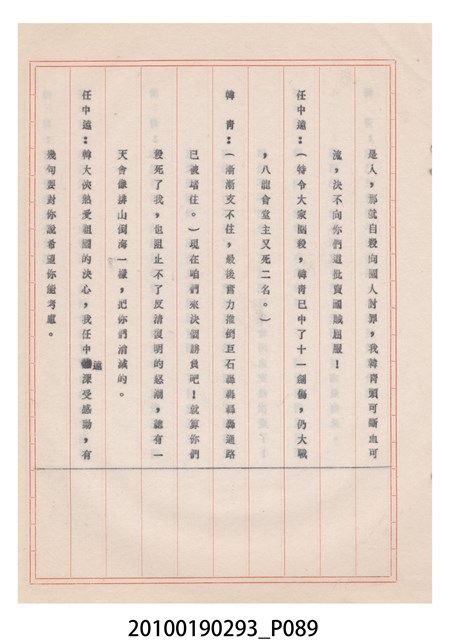 是人,那就自殺向國人討罪,我韓青頭可斷血可
流,決不向你們這批賣國賊屈服!
任中遠:(特令大家圍殺,韓青已中了十一劍傷,仍大戰
,八龍會堂主又死二名。)
韓 青:(漸漸支不住,最後奮力推倒巨石轟轟轟轟通路
已被堵住。)現在咱們來決個勝負吧!就算你們
殺死了我,也阻止不了反清復明的怒潮,總有一
天會像排山倒海一樣,把你們消滅的。
任中遠:韓大俠熱愛祖國的決心,我任中遠深受感動,有
幾句要對你說希望你能考慮。
20100190293_P089